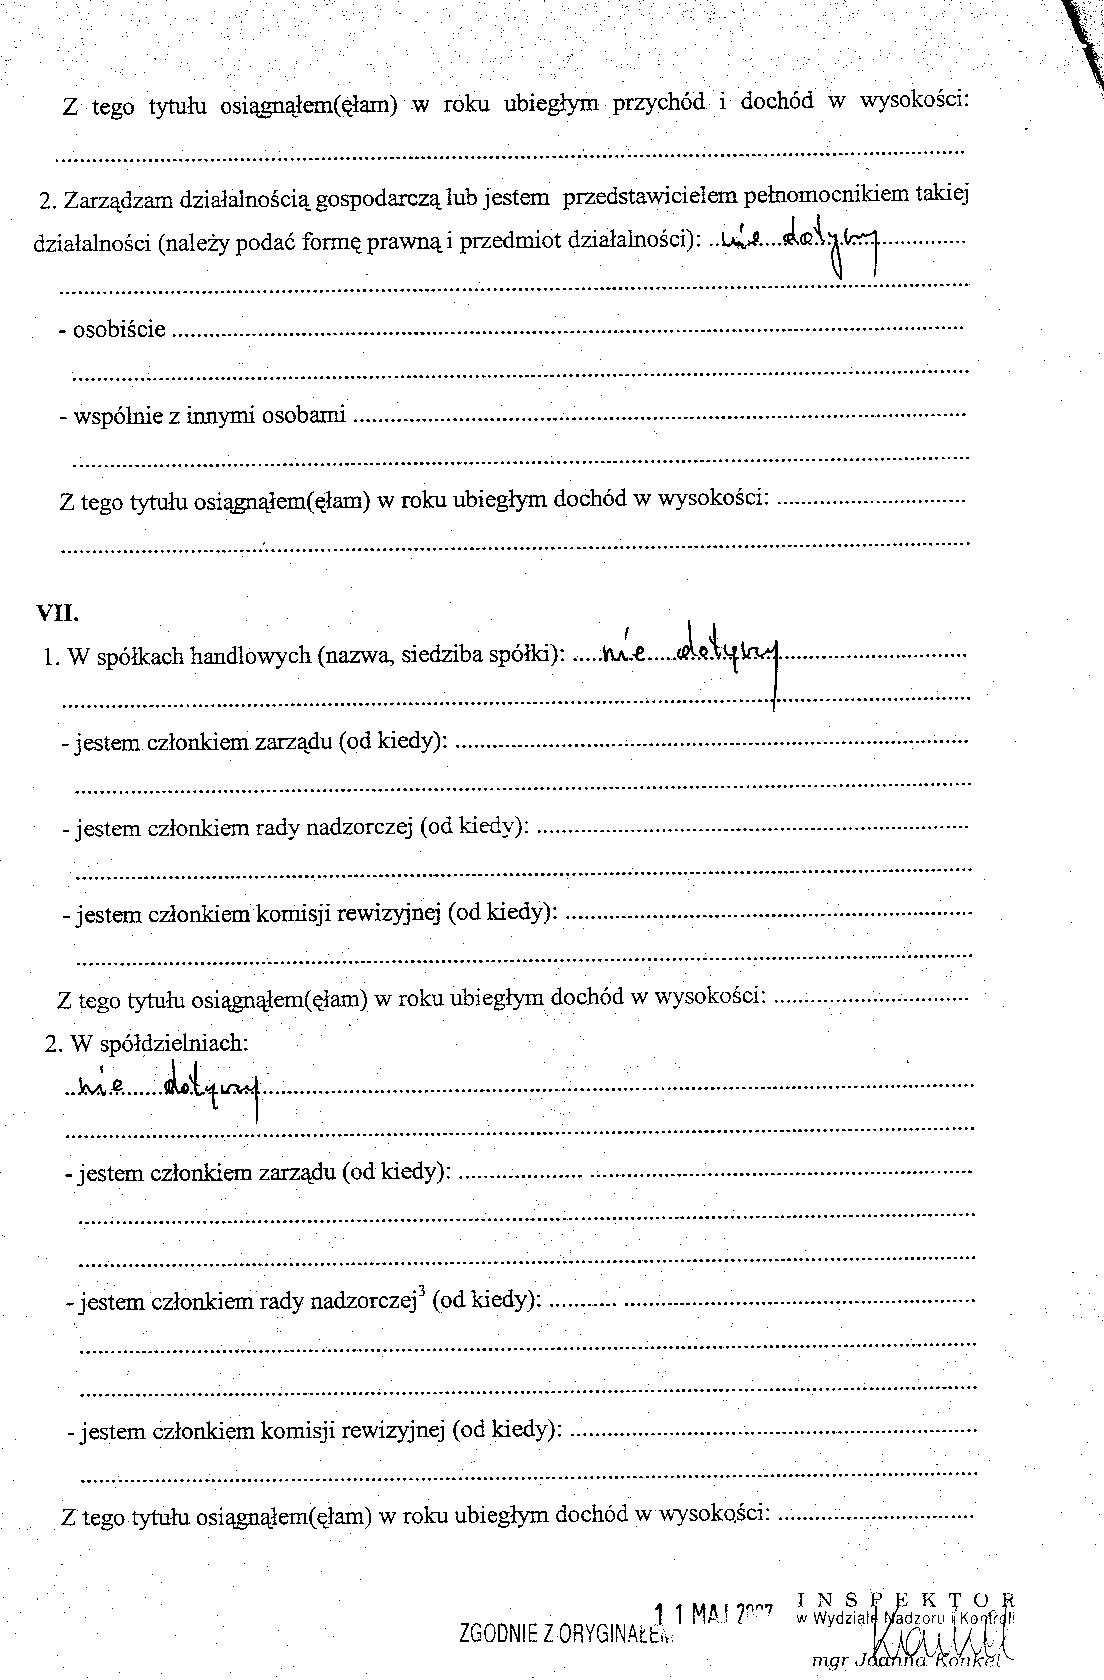 Z tego tytułu osiągnąłem(ęłam) w roku ubiegłym przychód i dochód w wysokości:
2. Zarządzam działalnością gospodarczą lub jestem przedstawicielem pełnomocnikiem takiej
działalności (należy podać formę prawną i przedmiot działalności): nie dotyczy
- osobiście
- wspólnie z innymi osobami
Z tego tytułu osiągnąłem(ęłam) w roku ubiegłym dochód w wysokości:
VII.
1. W spółkach handlowych (nazwa, siedziba spółki): nie dotyczy
- jestem członkiem zarządu (od kiedy):
- jestem członkiem rady nadzorczej (od kiedy):
- jestem członkiem komisji rewizyjnej (od kiedy):
Z tego tytułu osiągnąłem(ęłam) w roku ubiegłym dochód w wysokości:
2. W spółdzielniach:
nie dotyczy
- jestem członkiem zarządu (od kiedy):
- jestem członkiem rady nadzorczej³ (od kiedy):
- jestem członkiem komisji rewizyjnej (od kiedy):
Z tego tytułu osiągnąłem(ęłam) w roku ubiegłym dochód w wysokości:
11 MAJ 2007
ZGODNIE Z ORYGINAŁEM
INSPEKTOR
w Wydziale Nadzoru i Kontroli
mgr Joanna Konkel